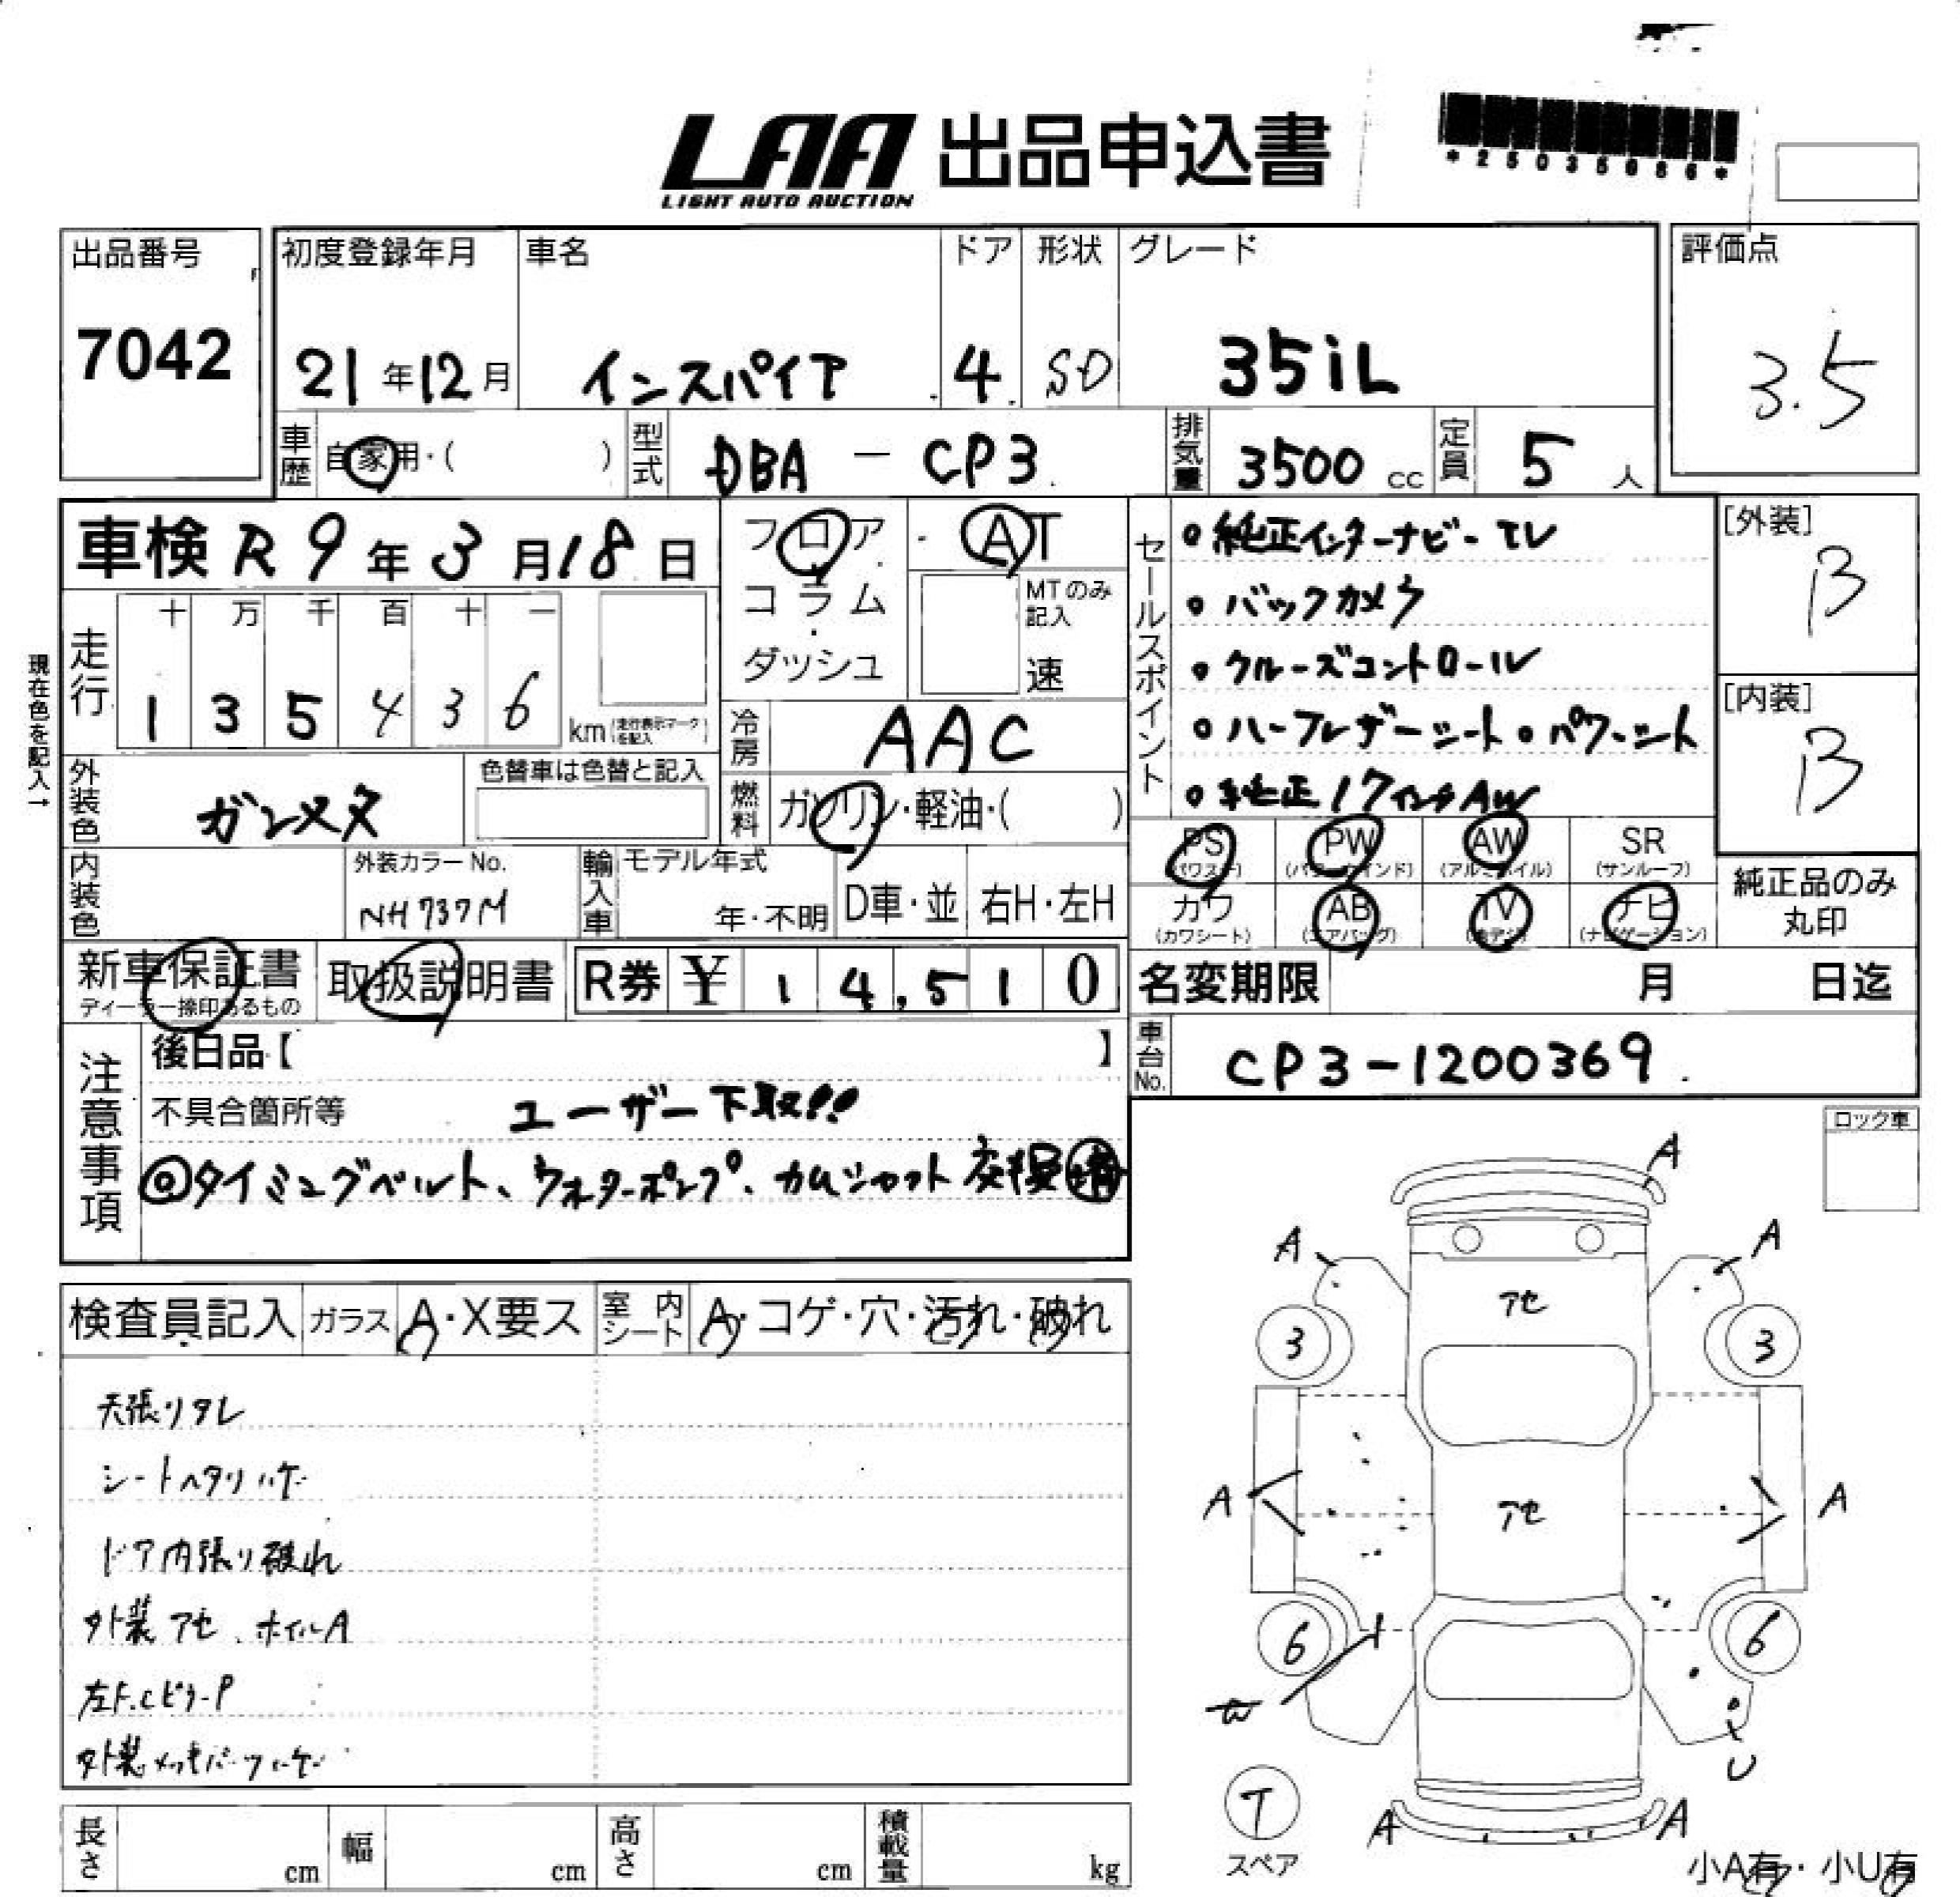 LAA 出品申込書
LIGHT AUTO AUCTION
*25035086*
出品番号
7042
初度登録年月
21年12月
車名
インスパイア
ドア
4
形状
SD
グレード
35iL
評価点
3.5
車歴 自家用・( )
型式 DBA － CP3
排気量 3500 cc
定員 5 人
車検 R9年3月18日
フロア・
コラム・
ダッシュ
AT
MTのみ記入
速
セールスポイント
・純正インターナビ－TV
・バックカメラ
・クルーズコントロール
・ハーフレザーシート・パワーシート
・純正17インチAW
[外装]
B
[内装]
B
現在色を記入→
走行
十 万 千 百 十 一
1 3 5 4 3 6 km(走行表示マークを記入)
冷房 AAC
外装色 ガンメタ
色替車は色替と記入
燃料 ガソリン・軽油・( )
内装色
外装カラーNo.
NH737M
輸入車 モデル年式
年・不明
D車・並 右H・左H
PS (パワステ)
PW (パワーウインド)
AW (アルミホイル)
SR (サンルーフ)
カワ (カワシート)
AB (エアバッグ)
TV (地デジ)
ナビ (ナビゲーション)
純正品のみ
丸印
新車保証書
ディーラー捺印あるもの
取扱説明書
R券 ¥ 14,510
名変期限 月 日迄
車台No. CP3-1200369
注意事項
後日品【 】
不具合箇所等 ユーザー下取!!
◎タイミングベルト、ウオーターポンプ、カムシャフト交換済
ロック車
検査員記入 ガラス A・X要ス 室内シート A・コゲ・穴・汚れ・破れ
天張りタレ
シートヘタリ ハゲ
ドア内張り破れ
外装アセ、ホイルA
左F.Cピラ-P
外装メッキパーツハゲ
A
A A
アセ
3 3
A A
アセ
6 6
W
U
T
スペア
A A
小A有・小U有
長さ cm 幅 cm 高さ cm 積載量 kg